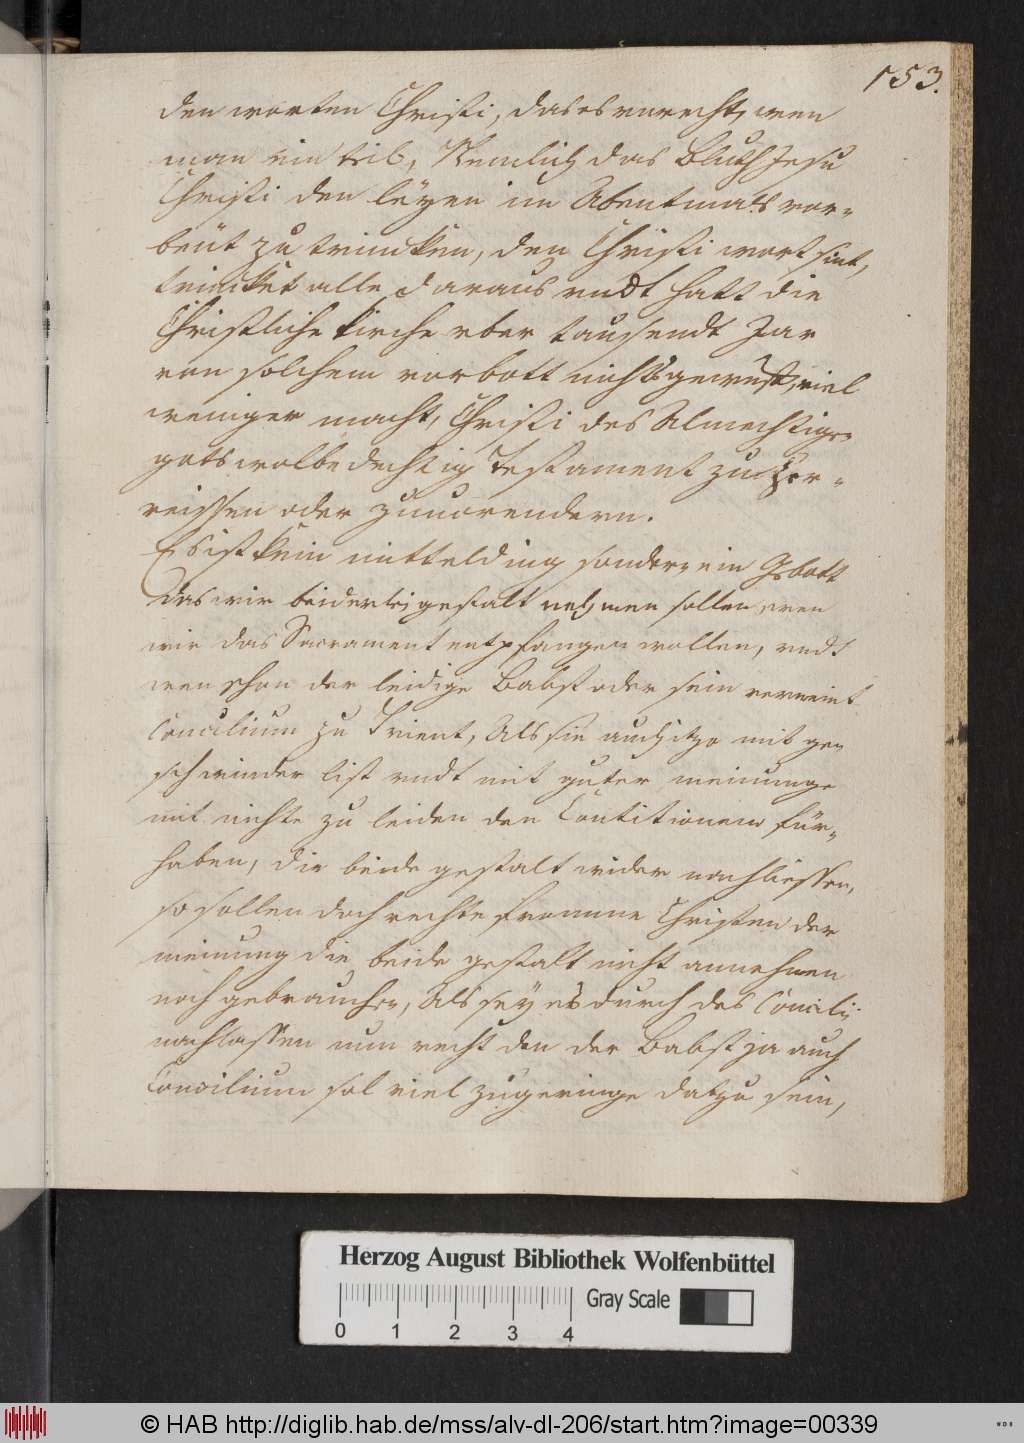 153.
den worten Christi, das es vnrecht, wen
man ein teil, Nemlich das Bluth Jesu
Christi den leÿen im Abentmals vor-
beüt zu trincken, den Christi wort sint,
trincket alle daraus vndt hatt die
Christliche kirche vber tausendt Jar
von solchem vorbott nichts gewust, viel
weniger macht, Christi des Almechtigen
gots wolbedechtig Testament zu Zer-
reissen oder zuuorendern.
Es ist kein mittelding sondern ein Gebott
das wir beiderlei gestalt nehmen sollen, wen
wir das Sacrament entpfangen wollen, vndt
wen schon der leidige Babst oder sein vermeint
Concilium zu Trient, Als sie auch itzo mit ge-
schwinder list vndt mit guter meinunge
mit nichte zu leiden den Contitionen für-
haben, die beide gestalt wider nachliessen,
so sollen doch rechte fromme Christen der
meinung die beide gestalt nicht annehmen
noch gebrauchen, Als seÿ es durch des Concilÿ
nachlassen nun recht den der Babst ja auch
Concilium sol viel zu geringe datzu sein,
Herzog August Bibliothek Wolfenbüttel
0 1 2 3 4 Gray Scale
© HAB http://diglib.hab.de/mss/alv-dl-206/start.htm?image=00339